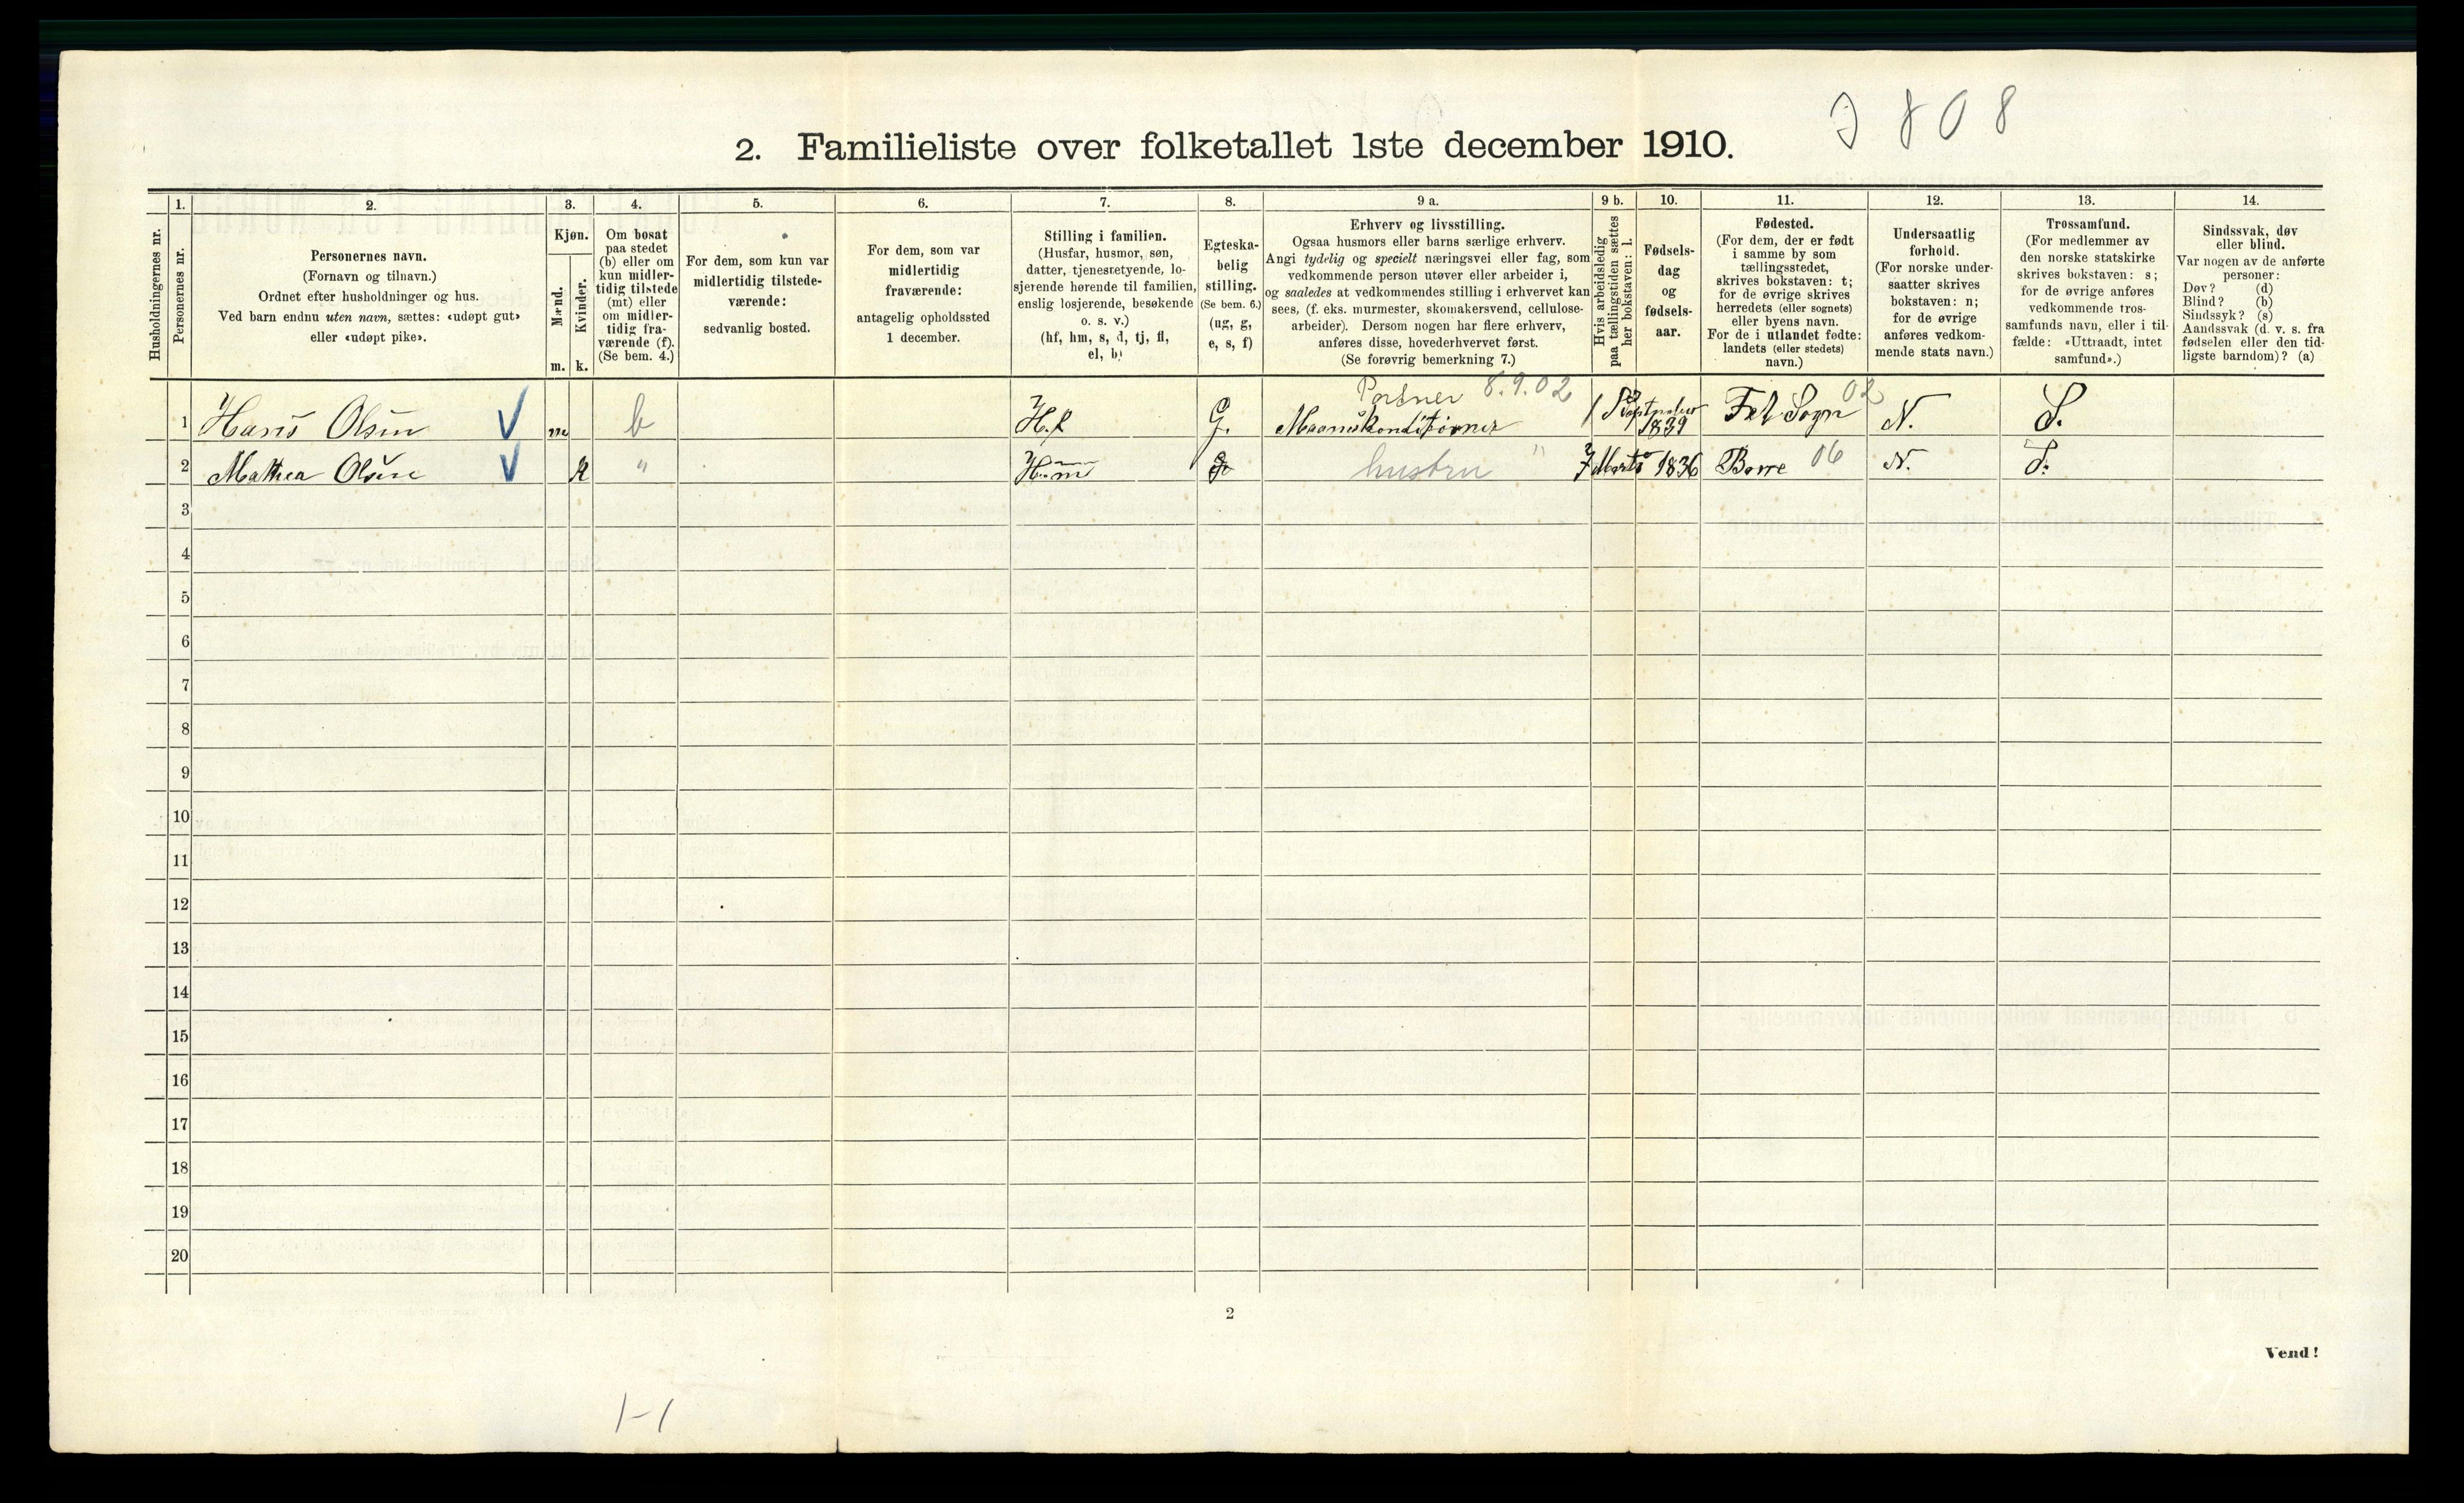 2. Familieliste over folketallet 1ste december 1910.
Husholdningernes nr.
1.
Personernes nr.
2.
Personernes navn.
(Fornavn og tilnavn.)
Ordnet efter husholdninger og hus.
Ved barn endnu uten navn, sættes: «udøpt gut»
eller «udøpt pike».
3.
Kjøn.
Mænd.
Kvinder.
m. k.
4.
Om bosat
paa stedet
(b) eller om
kun midler-
tidig tilstede
(mt) eller
om midler-
tidig fra-
værende (f).
(Se bem. 4.)
5.
For dem, som kun var
midlertidig tilstede-
værende:
sedvanlig bosted.
6.
For dem, som var
midlertidig
fraværende:
antagelig opholdssted
1 december.
7.
Stilling i familien.
(Husfar, husmor, søn,
datter, tjenestetyende, lo-
sjerende hørende til familien,
enslig losjerende, besøkende
o. s. v.)
(hf, hm, s, d, tj, fl,
el, b)
8.
Egteska-
belig
stilling.
(Se bem. 6.)
(ug, g,
e, s, f)
9 a.
Erhverv og livsstilling.
Ogsaa husmors eller barns særlige erhverv.
Angi tydelig og specielt næringsvei eller fag, som
vedkommende person utøver eller arbeider i,
og saaledes at vedkommendes stilling i erhvervet kan
sees, (f. eks. murmester, skomakersvend, cellulose-
arbeider). Dersom nogen har flere erhverv,
anføres disse, hovederhvervet først.
(Se forøvrig bemerkning 7.)
9 b.
Hvis arbeidsledig
paa tællingstiden sættes
her bokstaven: l.
10.
Fødsels-
dag
og
fødsels-
aar.
11.
Fødested.
(For dem, der er født
i samme by som
tællingsstedet,
skrives bokstaven: t;
for de øvrige skrives
herredets (eller sognets)
eller byens navn.
For de i utlandet fødte:
landets (eller stedets)
navn.)
12.
Undersaatlig
forhold.
(For norske under-
saatter skrives
bokstaven: n;
for de øvrige
anføres vedkom-
mende stats navn.)
13.
Trossamfund.
(For medlemmer av
den norske statskirke
skrives bokstaven: s;
for de øvrige anføres
vedkommende tros-
samfunds navn, eller i til-
fælde: «Uttraadt, intet
samfund».)
14.
Sindssvak, døv
eller blind.
Var nogen av de anførte
personer:
Døv? (d)
Blind? (b)
Sindssyk? (s)
Aandssvak (d. v. s. fra
fødselen eller den tid-
ligste barndom)? (a)
Portner 8.9.02
1 Hans Olsen V m b H.f G. 1839 Fet Sogn 02 N. S.
2 Mathea Olsen V k " H.m g hustru " 7 Marts 1836 Borre 06 N. S.
3
4
5
6
7
8
9
10
11
12
13
14
15
16
17
18
19
20
2
Vend!
1-1